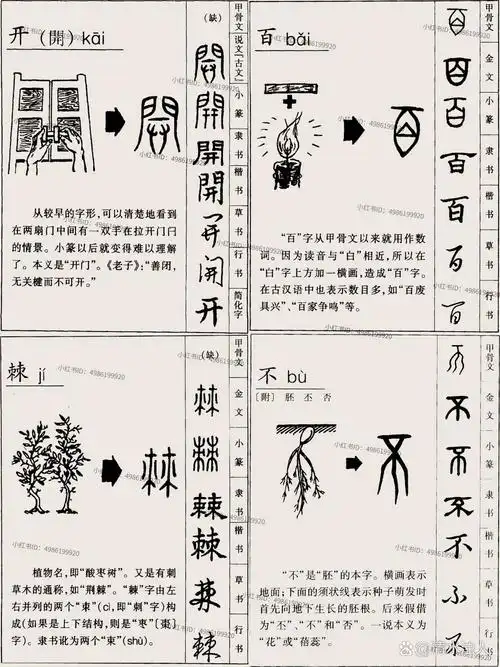 开（開）kāi
从较早的字形，可以清楚地看到
在两扇门中间有一双手在拉开门闩
的情景。小篆以后就变得难以理解
了。本义是“开门”。《老子》：“善闭，
无关楗而不可开。”
（缺）
開
開
开
甲骨文
说文「古文」
小篆
隶书
楷书
草书
行书
简化字
百 bǎi
“百”字从甲骨文以来就用作数
词。因为读音与“白”相近，所以在
“白”字上方加一横画，造成“百”字。
在古汉语中也表示数目多，如“百废
具兴”、“百家争鸣”等。
百
百
百
百
甲骨文
金文
小篆
隶书
楷书
草书
行书
棘 jí
植物名，即“酸枣树”。又是有刺
草木的通称，如“荆棘”。“棘”字由左
右并列的两个“朿”（cì，即“刺”字）构
成（如果是上下结构，则是“枣”〔棗〕
字）。隶书讹为两个“束”（shù）。
（缺）
棘
棘
棘
甲骨文
金文
小篆
隶书
楷书
草书
行书
不 bù
〔附〕 胚 丕 否
“不”是“胚”的本字。横画表示
地面；下面的须状线表示种子萌发时
首先向地下生长的胚根。后来假借
为“不”、“丕”和“否”。一说本义为
“花”或“蓓蕾”。
不
不
不
甲骨文
金文
小篆
隶书
楷书
草书
行书
小红书ID：4986199920